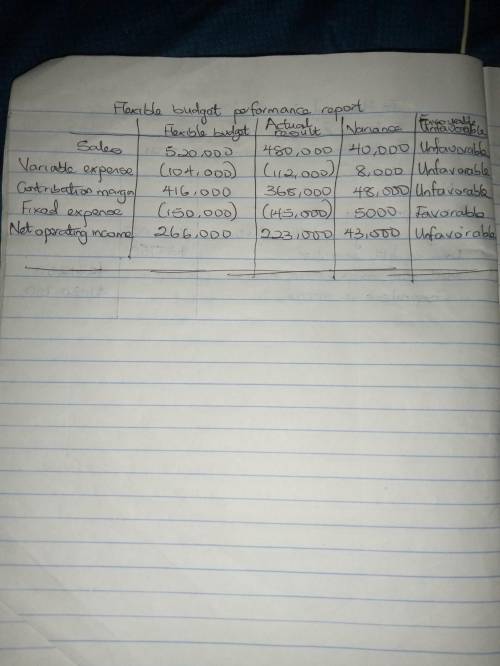 Flexible budget performance report
Flexible budget Actual result Variance Unfavorable
Sales 520,000 480,000 40,000 Unfavorable
Variable expense (104,000) (112,000) 8,000 Unfavorable
Contribution margin 416,000 368,000 48,000 Unfavorable
Fixed expense (150,000) (145,000) 5000 Favorable
Net operating income 266,000 223,000 43,000 Unfavorable